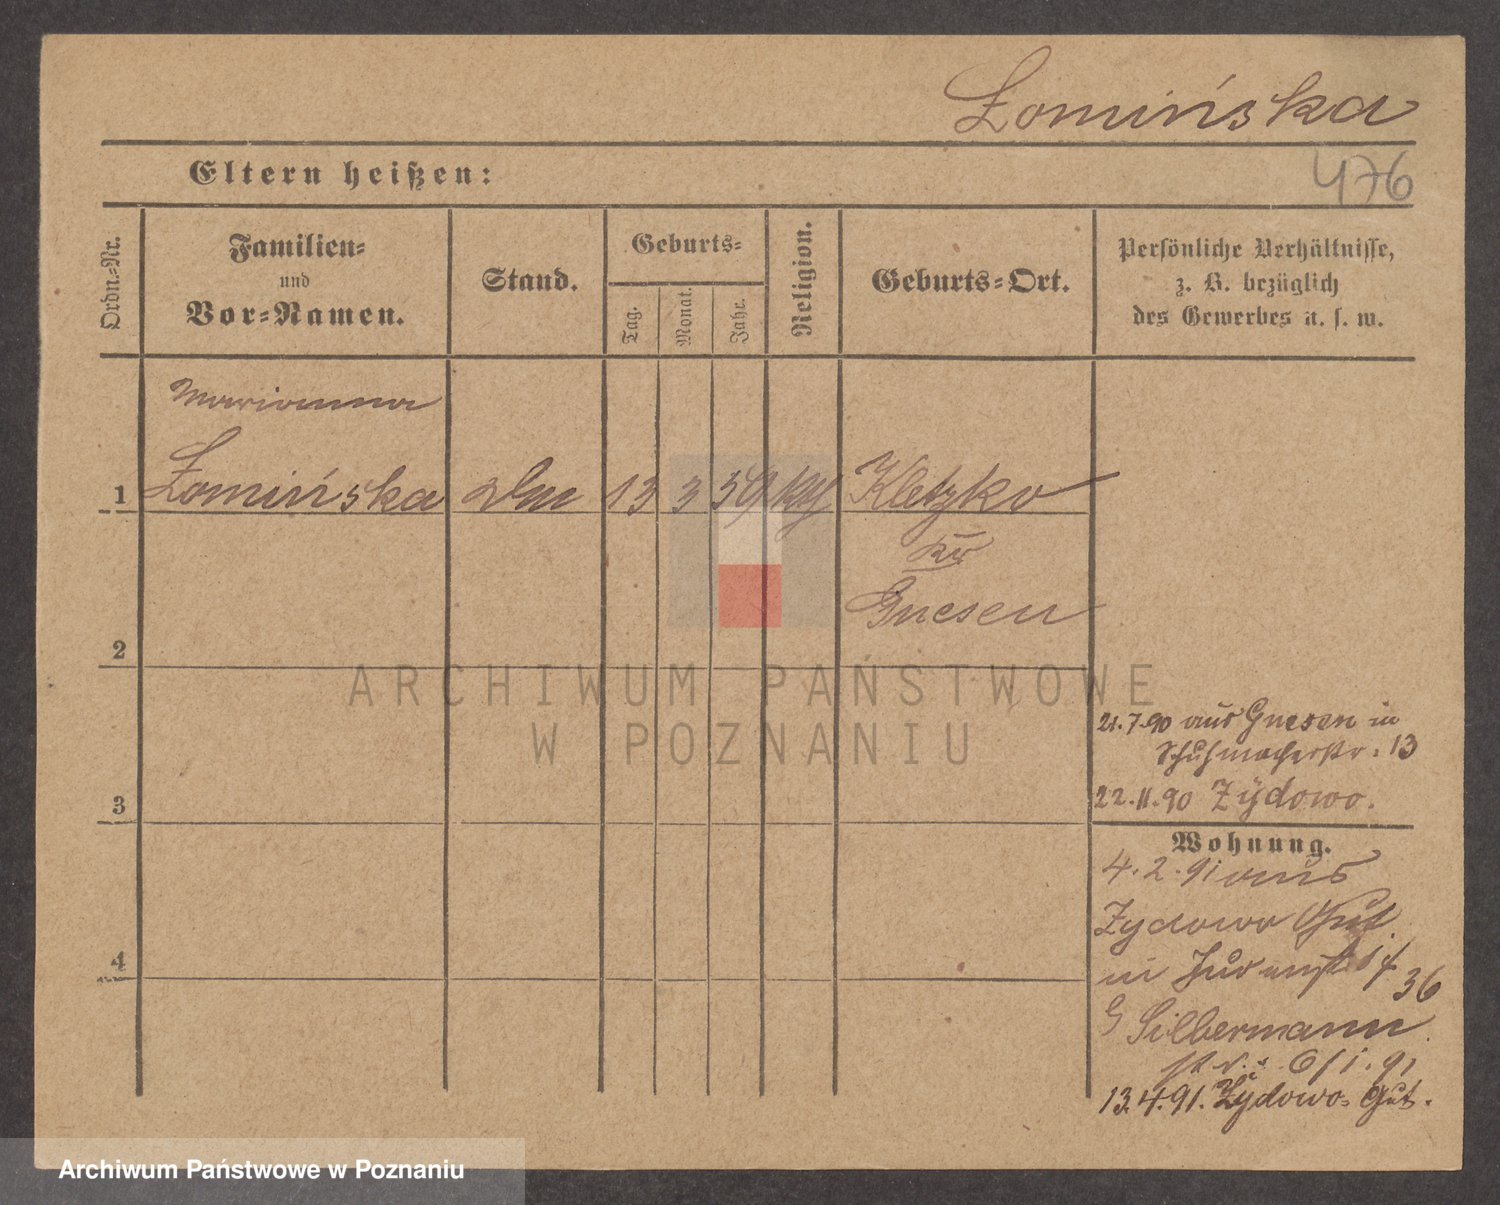 Łomińska
Eltern heißen:
476
Ordn.-Nr.
Familien-
und
Vor-Namen.
Stand.
Geburts-
Tag.
Monat.
Jahr.
Religion.
Geburts-Ort.
Persönliche Verhältnisse,
z. B. bezüglich
des Gewerbes u. s. w.
Marianna
1 Łomińska 13 3 59 Kletzko
Kr
Gnesen
2
3
4
21.7.90 aus Gnesen in
Schuhmacherstr. 13
22.11.90 Żydowo.
Wohnung.
4.2.91 aus
Zydowo Gut.
in
36
Silbermann
6/1.91
13.4.91. Żydowo Gut.
ARCHIWUM PAŃSTWOWE
W POZNANIU
Archiwum Państwowe w Poznaniu